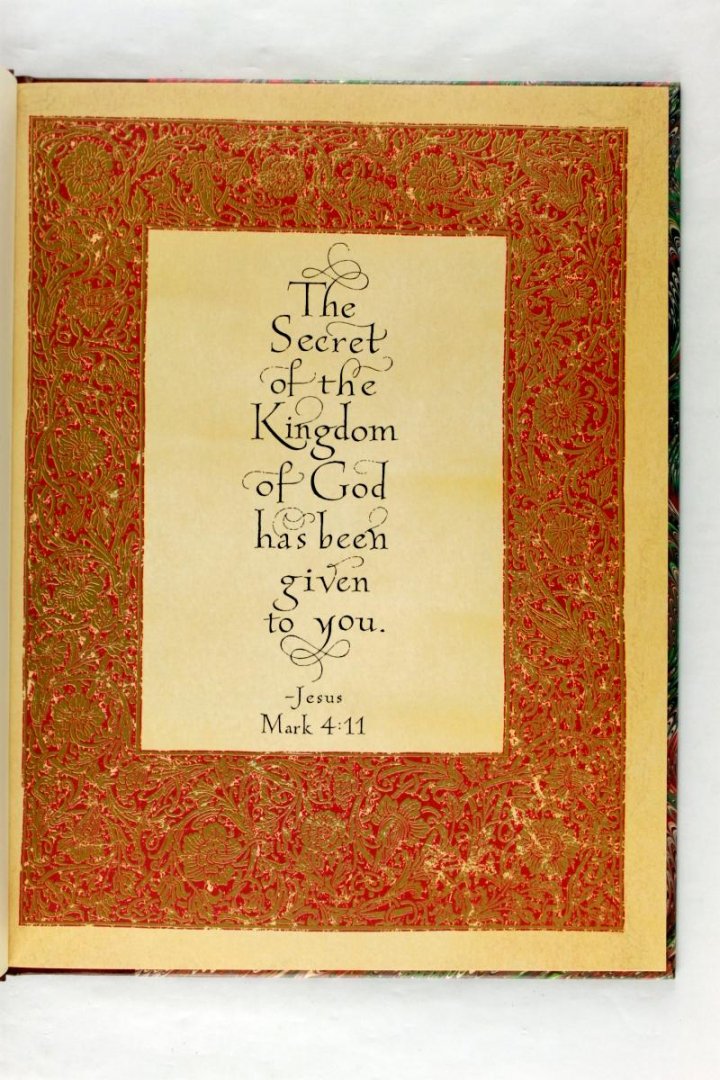 The
Secret
of the
Kingdom
of God
has been
given
to you.
-Jesus
Mark 4:11